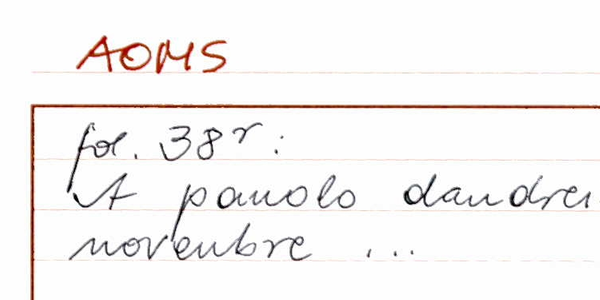 AOMS
fol. 38r:
A pauolo dandrei
novenbre ...